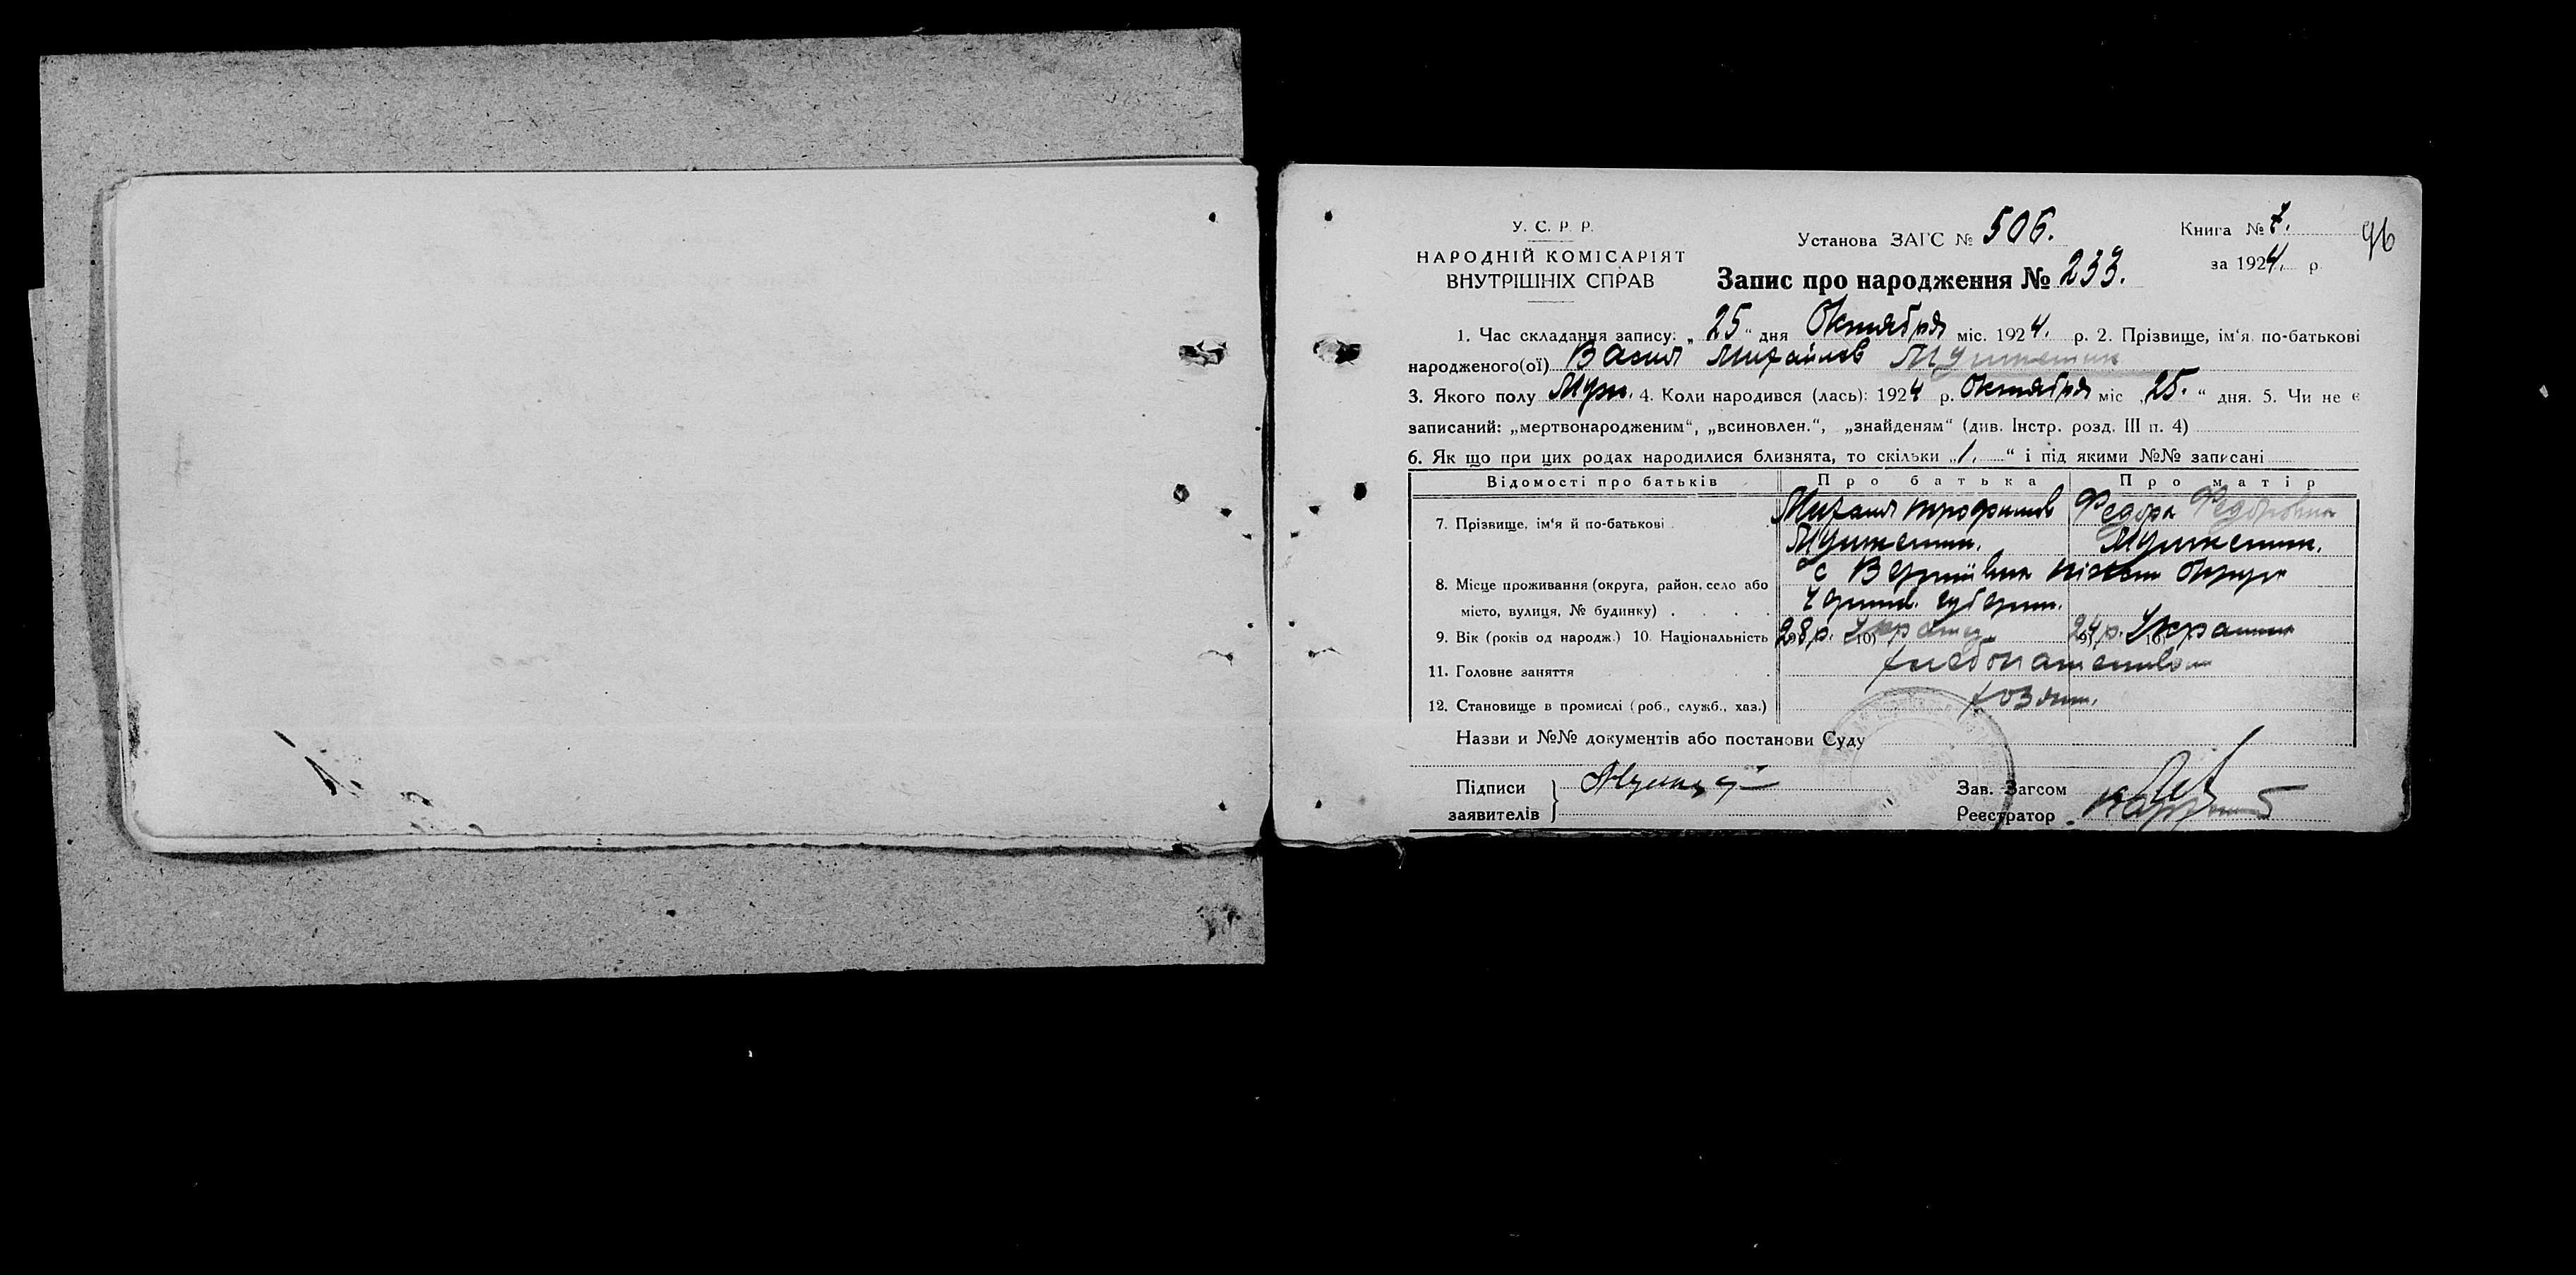 У. С. Р. Р.
НАРОДНІЙ КОМІСАРІЯТ
ВНУТРІШНІХ СПРАВ
Установа ЗАГС № 506.
Запис про народження № 233.
Книга № 7.
за 1924. р.
96
1. Час складання запису: „25" дня Октября міс. 1924. р. 2. Прізвище, ім'я, по-батькові
народженого(ої) Васил Михайлов
3. Якого полу Муж. 4. Коли народився (лась): 1924 р. Октября міс „25." дня. 5. Чи не є
записаний: „мертвонародженим", „всиновлен.", „знайденям" (див. Інстр. розд. III п. 4)
6. Як що при цих родах народилися близнята, то скільки „1." і під якими №№ записані
Відомості про батьків Про батька Про матір
7. Прізвище, ім'я й по-батькові Михаил Трофимов Федора Федоровна
8. Місце проживання (округа, район, село або с Вертіївка Ніжин Округи
місто, вулиця, № будинку) Черниг. губерн.
9. Вік (років од народж.) 10. Національність 28 р. 10) Украинц 9) 24 р. 10) Украинк
11. Головне заняття хлебопашество
12. Становище в промислі (роб., служб., хаз.) хозяин.
Назви и №№ документів або постанови Суду
Підписи
заявителів
Зав. Загсом
Реєстратор